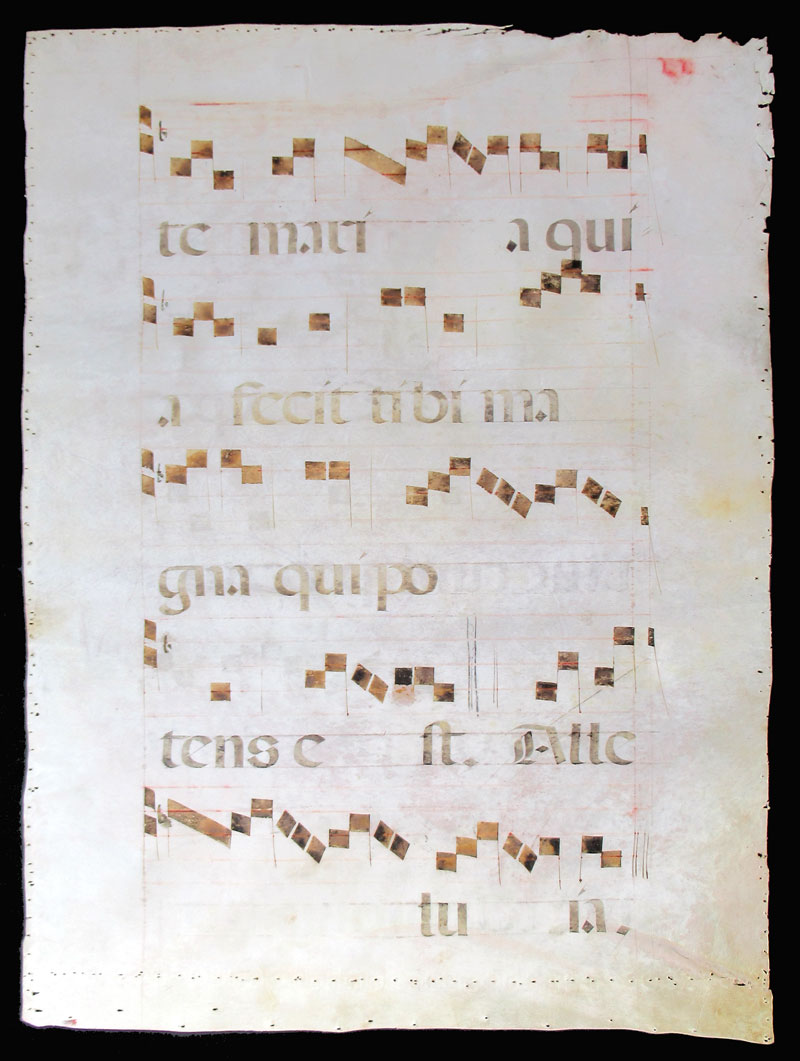 te marí a quí
a fecit tibi ma
gna qui po
tens e st. Alle
lu ia.